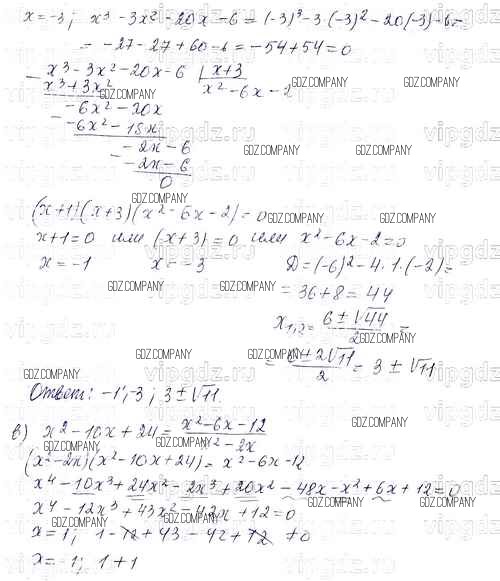 x=-3; x³-3x²-20x-6=(-3)³-3·(-3)²-20·(-3)-6=
=-27-27+60-6=-54+54=0
x³-3x²-20x-6 | x+3
x³+3x² x²-6x-2
-6x²-20x
-6x²-18x
-2x-6
-2x-6
0
(x+1)(x+3)(x²-6x-2)=0
x+1=0 или (x+3)=0 или x²-6x-2=0
x=-1 x=-3 D=(-6)²-4·1·(-2)=
=36+8=44
x₁,₂=(6±√44)/2=
=(6±2√11)/2=3±√11
Ответ: -1;-3; 3±√11.
в) x²-10x+24=(x²-6x-12)/(x²-2x)
(x²-2x)(x²-10x+24)=x²-6x-12
x⁴-10x³+24x²-2x³+20x²-48x-x²+6x+12=0
x⁴-12x³+43x²-42x+12=0
x=1; 1-12+43-42+12≠0
x=1; 1+1
GDZ.COMPANY
vipgdz.ru